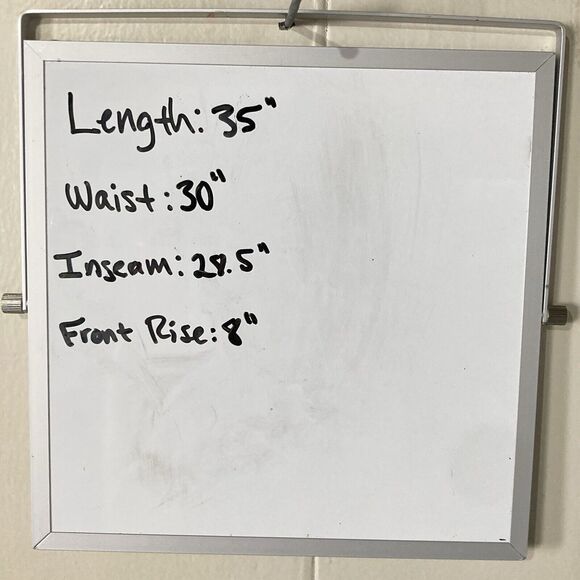 Length: 35"
Waist: 30"
Inseam: 28.5"
Front Rise: 8"